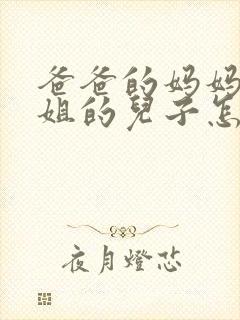 爸爸的妈妈
姐的兒子怎
夜月燈芯